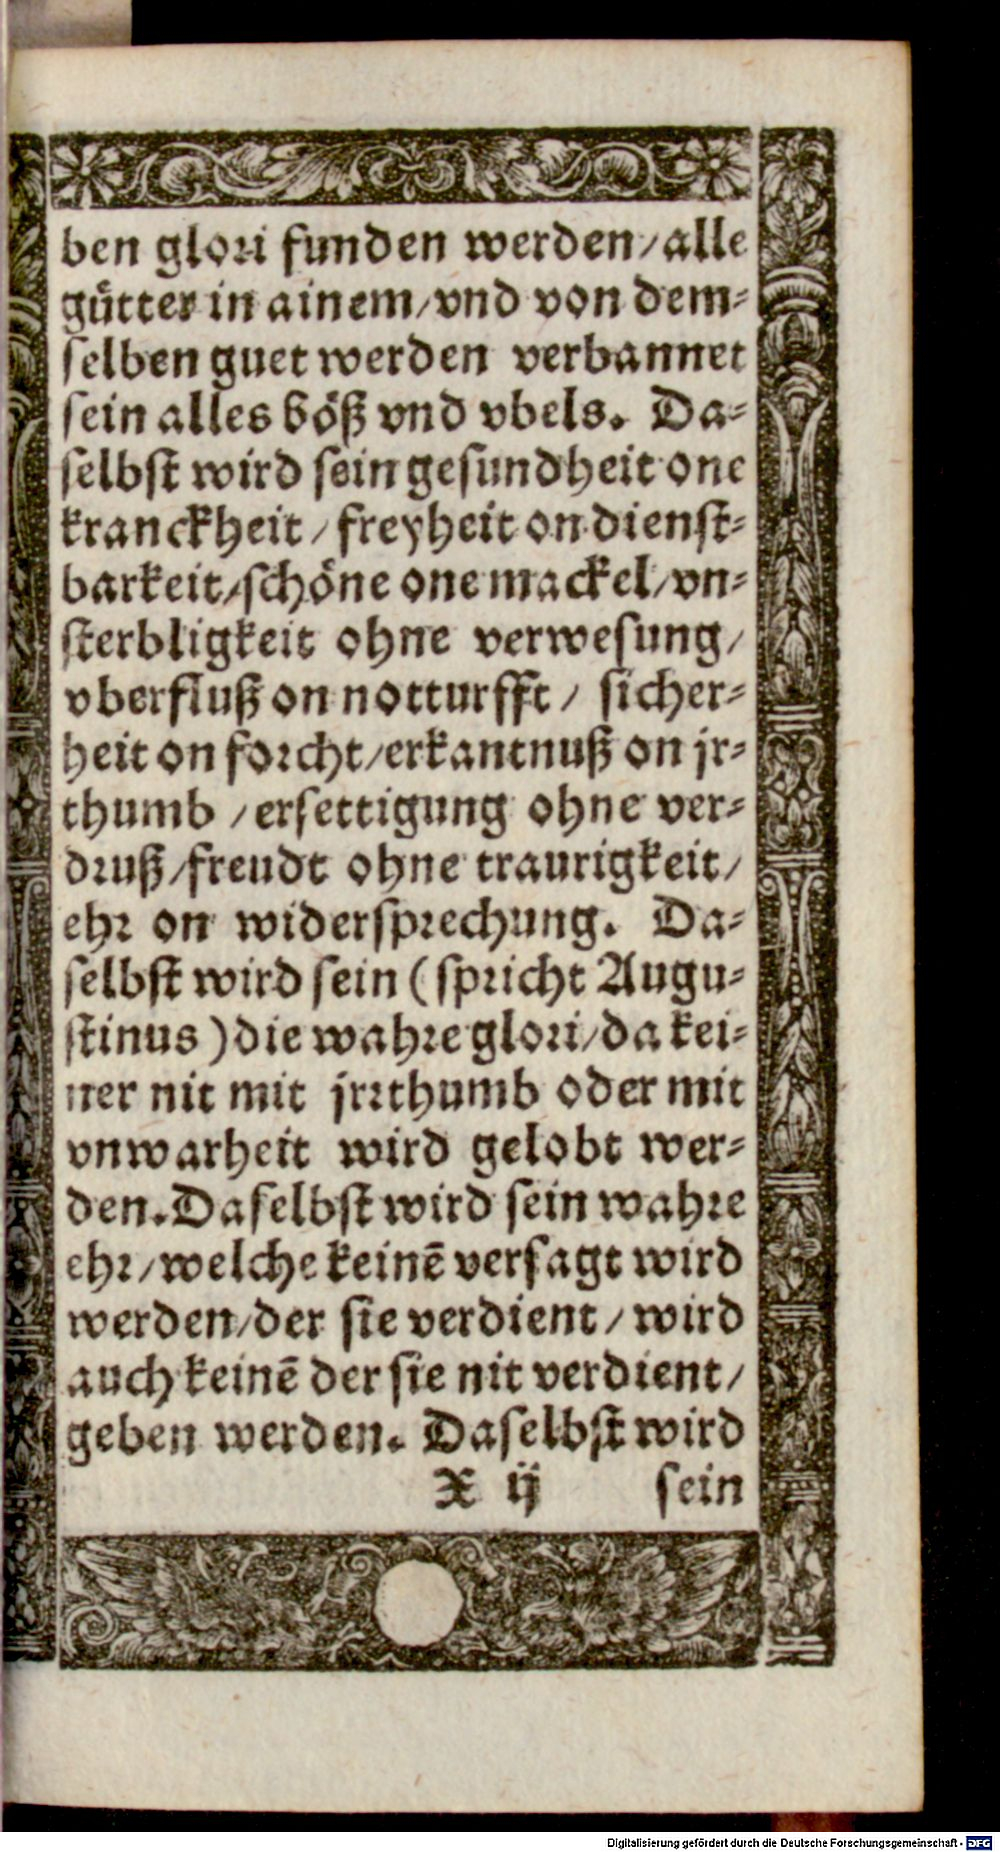 ben glori funden werden/alle
gütter in ainem/vnd von dem-
selben guet werden verbannet
sein alles böß vnd vbels. Da-
selbst wird sein gesundheit one
kranckheit/freyheit on dienst-
barkeit/schöne one mackel/vn-
sterbligkeit ohne verwesung/
vberfluß on notturfft/ sicher-
heit on forcht/erkantnuß on jr-
thumb /ersettigung ohne ver-
druß/freudt ohne traurigkeit/
ehr on widersprechung. Da-
selbst wird sein (spricht Augu-
stinus) die wahre glori/da kei-
ner nit mit jrrthumb oder mit
vnwarheit wird gelobt wer-
den. Daselbst wird sein wahre
ehr/welche keinē versagt wird
werden/der sie verdient/ wird
auch keinē der sie nit verdient/
geben werden. Daselbst wird
X ij sein
Digitalisierung gefördert durch die Deutsche Forschungsgemeinschaft - DFG